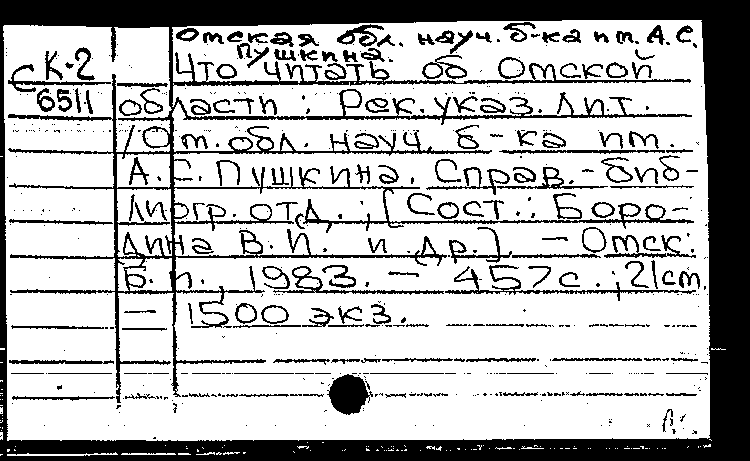 Омская обл. науч. б-ка им. А.С.
Пушкина.
С К-2
6511
Что читать об Омской
области : Рек. указ. лит.
/ Ом. обл. науч. б-ка им.
А.С. Пушкина. Справ.-биб-
лиогр. отд. ; [Сост.: Боро-
дина В.И. и др.]. — Омск:
Б. и., 1983. — 457с. ; 21см.
— 1500 экз.